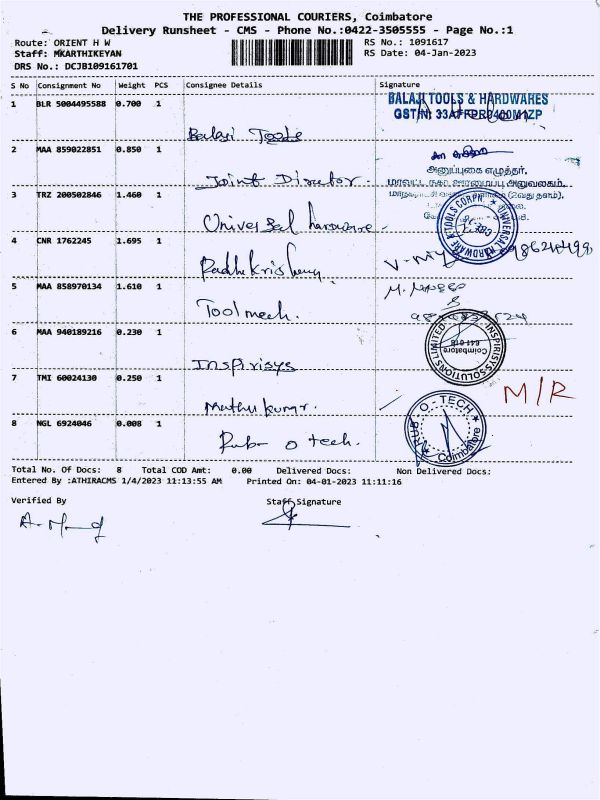 THE PROFESSIONAL COURIERS, Coimbatore
Delivery Runsheet - CMS - Phone No.:0422-3505555 - Page No.:1
Route: ORIENT H W
RS No.: 1091617
Staff: MKARTHIKEYAN
RS Date: 04-Jan-2023
DRS No.: DCJB109161701
S No Consignment No Weight PCS Consignee Details Signature
1 BLR 5004495588 0.700 1
BALAJI TOOLS & HARDWARES
GSTIN:
Balaji Tools
2 MAA 859022851 0.850 1
அனுப்புகை எழுத்தர்,
Joint Director
3 TRZ 200502846 1.460 1
Universal hardware
UNIVERSAL HARDWARE & TOOLS CORPN.
4 CNR 1762245 1.695 1
Radhakrishnan
5 MAA 858970134 1.610 1
Toolmech.
6 MAA 940189216 0.230 1
Inspirisys
INSPIRISYS SOLUTIONS LIMITED
Coimbatore
7 TMI 60024130 0.250 1
Muthukumar.
M/R
8 NGL 6924046 0.008 1
Rub-o tech.
RUB - O - TECH
Coimbatore
Total No. Of Docs: 8 Total COD Amt: 0.00 Delivered Docs: Non Delivered Docs:
Entered By :ATHIRACMS 1/4/2023 11:13:55 AM Printed On: 04-01-2023 11:11:16
Verified By Staff Signature